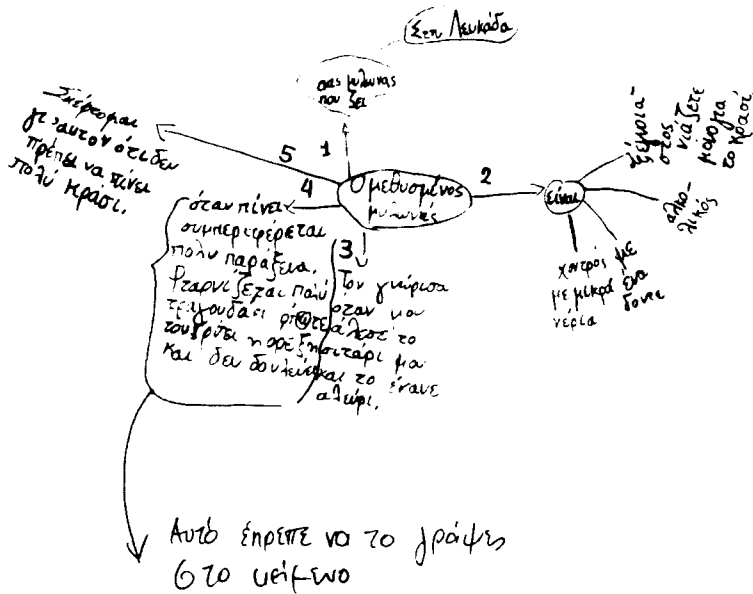 Στη Λευκάδα
ένας μυλωνάς
που ζει
1
Ο μεθυσμένος
μυλωνάς
2
είναι
ξεμοιά-
στος νιάζετε
μόνο για
το κρασί
αλκο-
λικός
χοντρός με
με μικρά ένα
χέρια δοντι
3
Τον γνώρισα
όταν μου
άλεσε το
σιτάρι μου
και το έκανε
αλεύρι.
4
όταν πίνει
συμπεριφέρεται
πολυ παράξενα.
Φταρνίζεται πολύ
τραγουδάει
του η ορεξη
και δεν δουλεύει
5
Σκέφτομαι
γι'αυτον ότι δεν
πρέπει να πίνει
πολύ κράσι.
Αυτό έπρεπε να το γράψες
στο κείμενο